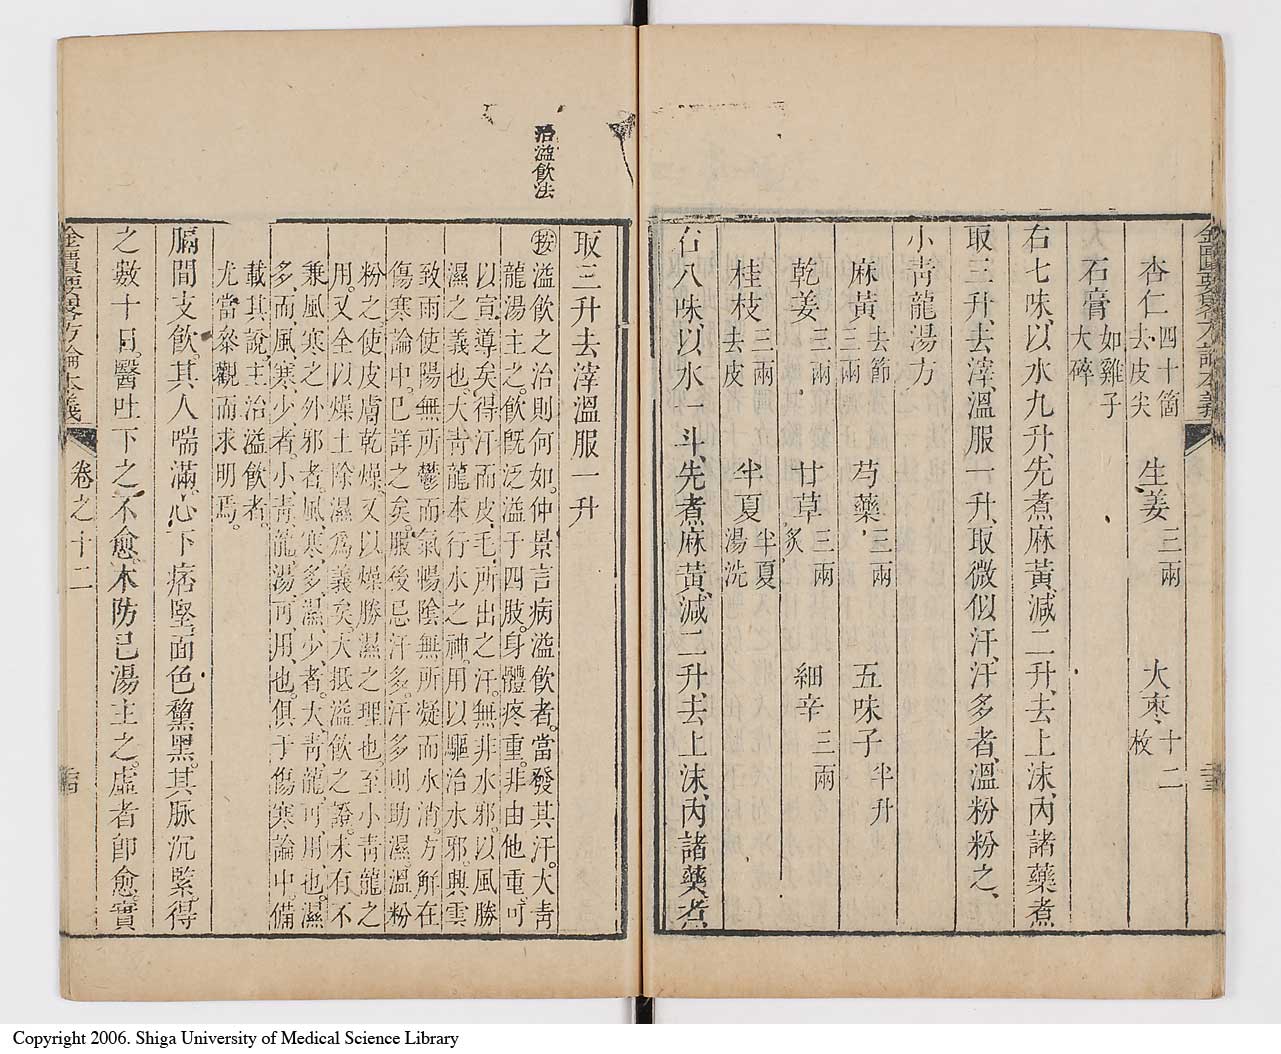 杏仁四十箇去皮尖　生姜三兩　大棗十二枚
石膏如雞子大碎
右七味、以水九升、先煮麻黃、減二升、去上沫、內諸藥煮
取三升、去滓、溫服一升、取微似汗、汗多者、溫粉粉之、
小靑龍湯方
麻黃去節三兩　芍藥三兩　五味子半升
乾姜三兩　甘草三兩炙　細辛三兩
桂枝三兩去皮　半夏半夏湯洗
右八味、以水一斗、先煮麻黃、減二升、去上沫、內諸藥、煮
治溢飮法
取三升去滓溫服一升
按溢飮之治則何如。仲景言病溢飮者。當發其汗。大靑
龍湯主之。飮旣泛溢于四肢。身體疼重。非由他重。可
以宣導矣。得汗而皮毛所出之汗。無非水邪。以風勝
濕之義也。大靑龍本行水之神。用以驅治水邪。興雲
致雨使陽無所鬱而氣暢陰無所凝而水消。方解在
傷寒論中。已詳之矣。服後忌汗多。汗多則助濕。溫粉
粉之。使皮膚乾燥。又以燥勝濕之理也。至小靑龍之
用。又全以燥土除濕爲義矣。大抵溢飮之證。未有不
乗風寒之外邪者。風寒多濕少者。大靑龍可用也。濕
多而風寒少者。小靑龍湯可用也。俱于傷寒論中備
載其說。主治溢飮者。
尤當叅觀而求明焉。
膈間支飮。其人喘滿。心下痞堅。面色黧黑。其脉沉緊。得
之數十日。醫吐下之不愈。木防已湯主之。虛者卽愈。實
金匱要畧方論本義
卷之十二